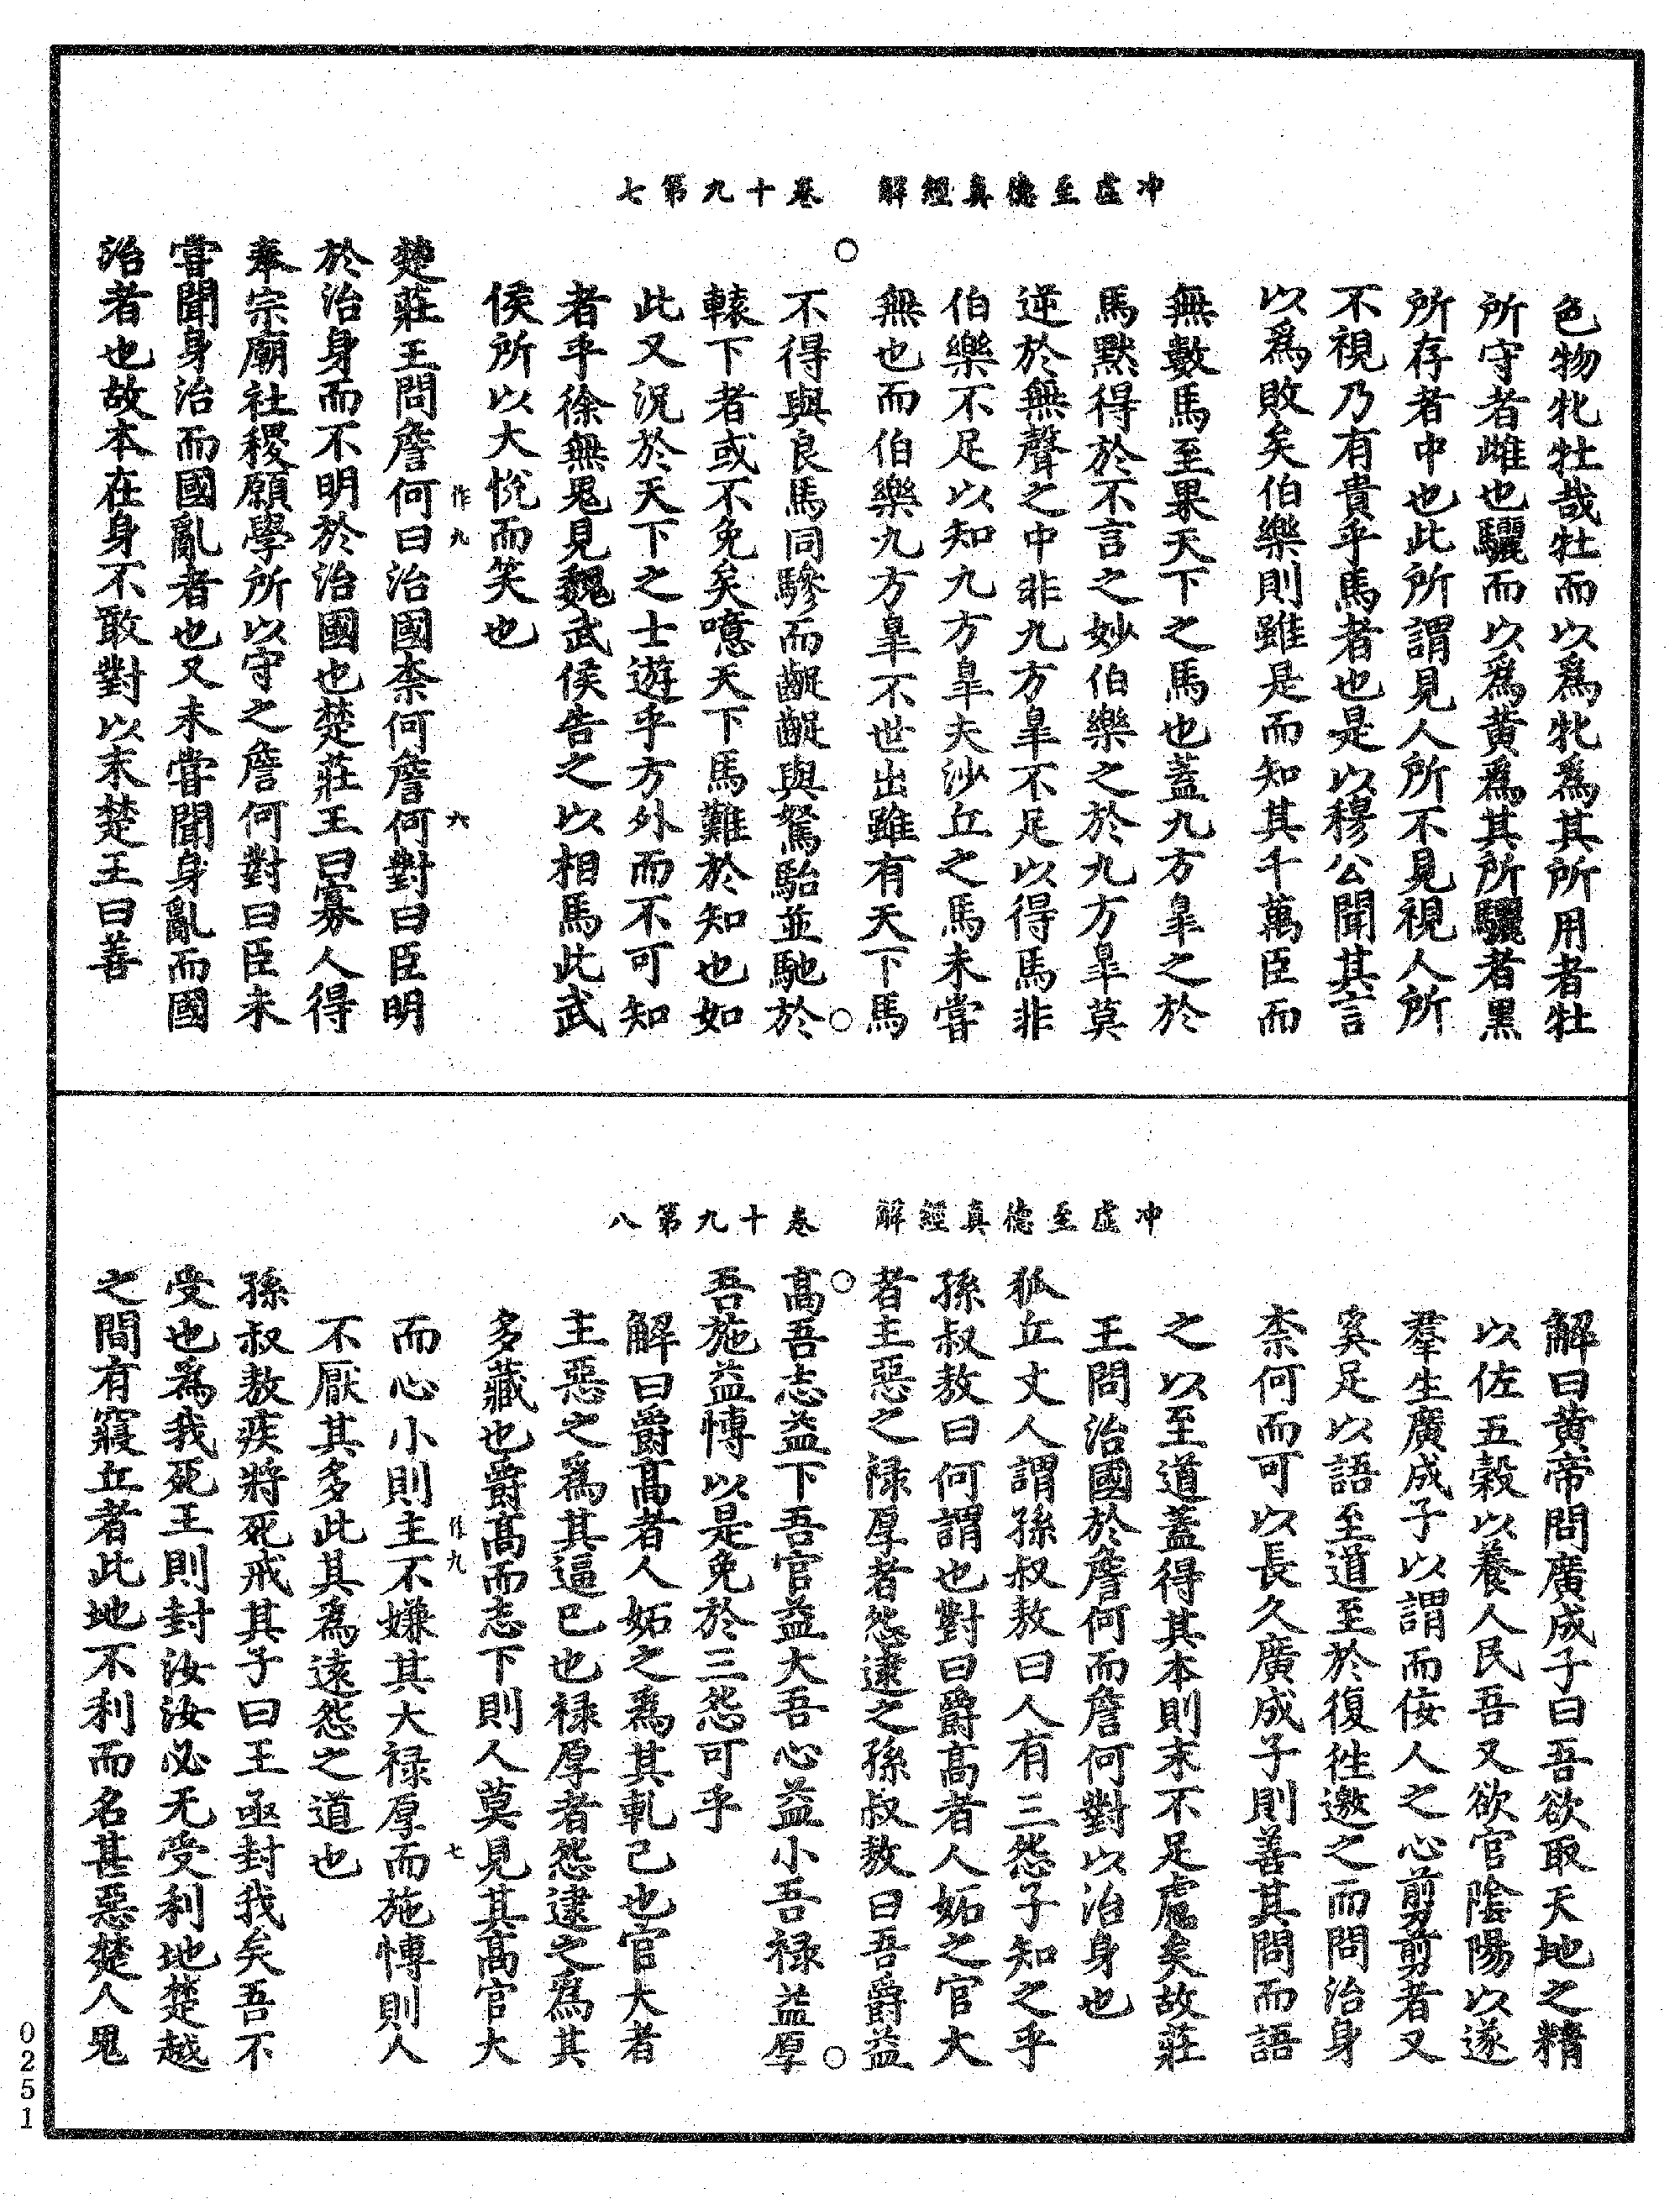 冲虛至德真經解　卷十九第七
色物牝牡哉牡而以爲牝爲其所用者牡
所守者雌也驪而以爲黃爲其所驪者黑
所存者中也此所謂見人所不見視人所
不視乃有貴乎馬者也是以穆公聞其言
以爲敗矣伯樂則雖是而知其千萬臣而
無數馬至果天下之馬也蓋九方臯之於
馬默得於不言之妙伯樂之於九方臯莫
逆於無聲之中非九方臯不足以得馬非
伯樂不足以知九方臯夫沙丘之馬未嘗
無也而伯樂九方臯不世出雖有天下馬
不得與良馬同驂而齪齪與駑駘並馳於
轅下者或不免矣噫天下馬難於知也如
此又況於天下之士遊乎方外而不可知
者乎徐無鬼見魏武侯告之以相馬此武
侯所以大悅而笑也
作九　六
楚莊王問詹何曰治國柰何詹何對曰臣明
於治身而不明於治國也楚莊王曰寡人得
奉宗廟社稷願學所以守之詹何對曰臣未
嘗聞身治而國亂者也又未嘗聞身亂而國
治者也故本在身不敢對以末楚王曰善
冲虛至德真經解　卷十九第八
解曰黃帝問廣成子曰吾欲取天地之精
以佐五穀以養人民吾又欲官陰陽以遂
羣生廣成子以謂而佞人之心翦翦者又
奚足以語至道至於復徃邀之而問治身
柰何而可以長久廣成子則善其問而語
之以至道蓋得其本則末不足處矣故莊
王問治國於詹何而詹何對以治身也
狐丘丈人謂孫叔敖曰人有三怨子知之乎
孫叔敖曰何謂也對曰爵高者人妬之官大
者主惡之祿厚者怨逮之孫叔敖曰吾爵益
高吾志益下吾官益大吾心益小吾祿益厚
吾施益愽以是免於三怨可乎
解曰爵高者人妬之爲其軋己也官大者
主惡之爲其逼已也祿厚者怨逮之爲其
多藏也爵高而志下則人莫見其高官大
作九　七
而心小則主不嫌其大祿厚而施愽則人
不厭其多此其為遠怨之道也
孫叔敖疾將死戒其子曰王亟封我矣吾不
受也爲我死王則封汝汝必无受利地楚越
之間有寢丘者此地不利而名甚惡楚人鬼
0251